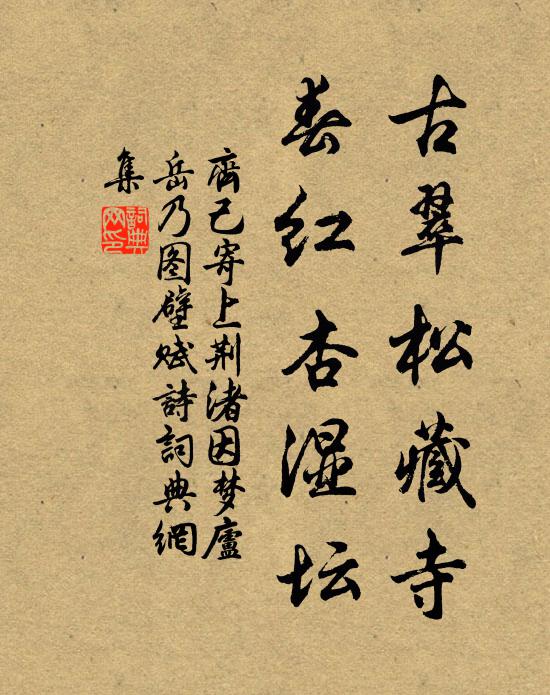 古翠松藏寺
春红杏湿坛
齊己寄上荆渚因梦廬
岳乃图壁赋詩詞典網
集
詞典網印